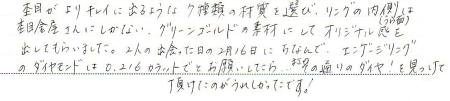 杢目がよりキレイに出るような7種類の材質を選び、リングの内側は
(うら面)
杢目金屋さんにしかない、グリーンゴールドの素材にしてオリジナル感を
出してもらいました。2人の出会った日の2月16日にちなんで、エンゲージリング
のダイヤモンドは0.216カラットでとお願いしたら…の通りのダイヤを見つけて
頂けたのがうれしかったです!